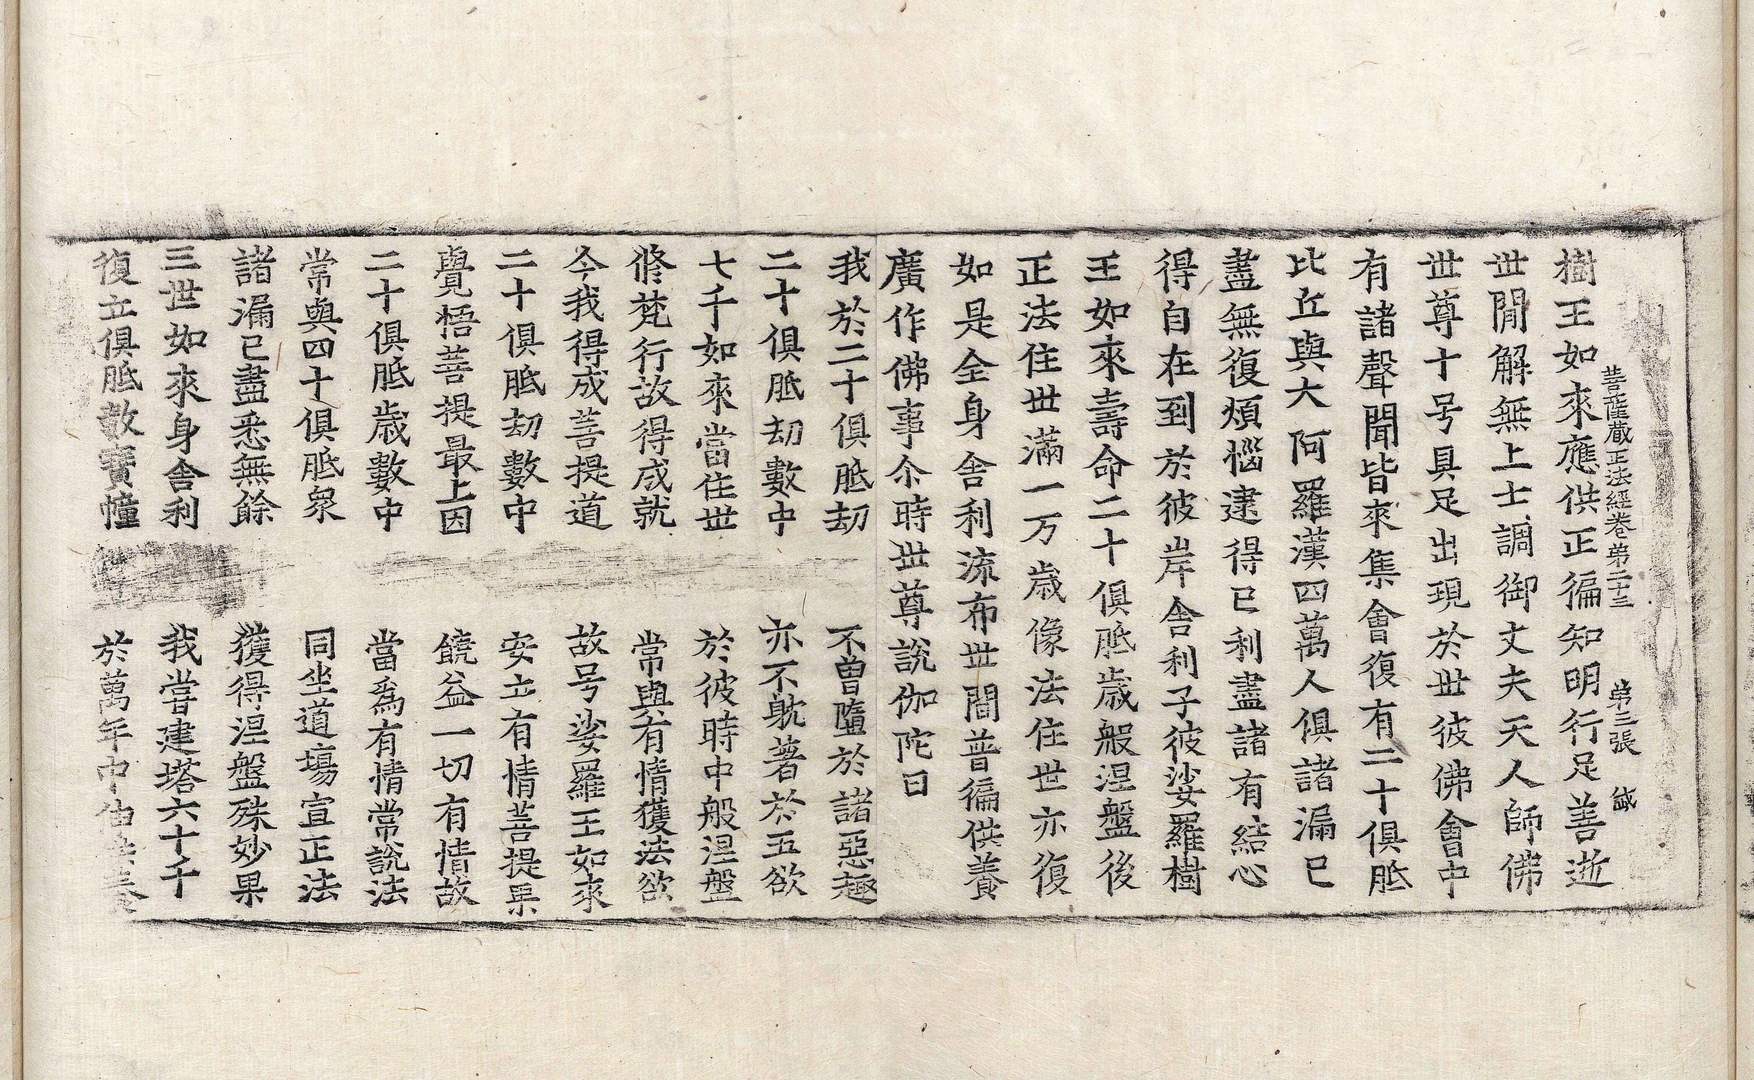 菩薩蔵正法經卷第二十三　第三張　誠
樹王如來應供正徧知明行足善逝
世閒解無上士調御丈夫天人師佛
世尊十号具足出現於世彼佛會中
有諸聲聞皆來集會復有二十俱胝
比丘與大阿羅漢四萬人俱諸漏已
盡無復煩惱逮得已利盡諸有結心
得自在到於彼岸舍利子彼娑羅樹
王如來壽命二十俱胝歲般涅盤後
正法住世滿一万歲像法住世亦復
如是全身舍利流布世閒普徧供養
廣作佛事尒時世尊說伽陀曰
我於二十俱胝劫　不曾墮於諸惡趣
二十俱胝劫數中　亦不躭著於五欲
七千如來當住世　於彼時中般涅盤
修梵行故得成就　常與有情獲法欲
今我得成菩提道　故号娑羅王如來
二十俱胝劫數中　安立有情菩提果
覺悟菩提最上因　饒益一切有情故
二十俱胝歲數中　當爲有情常說法
常與四十俱胝衆　同坐道場宣正法
諸漏已盡悉無餘　獲得涅盤殊妙果
三世如來身舍利　我嘗建塔六十千
復立俱胝數寶幢　於萬年中伸供養